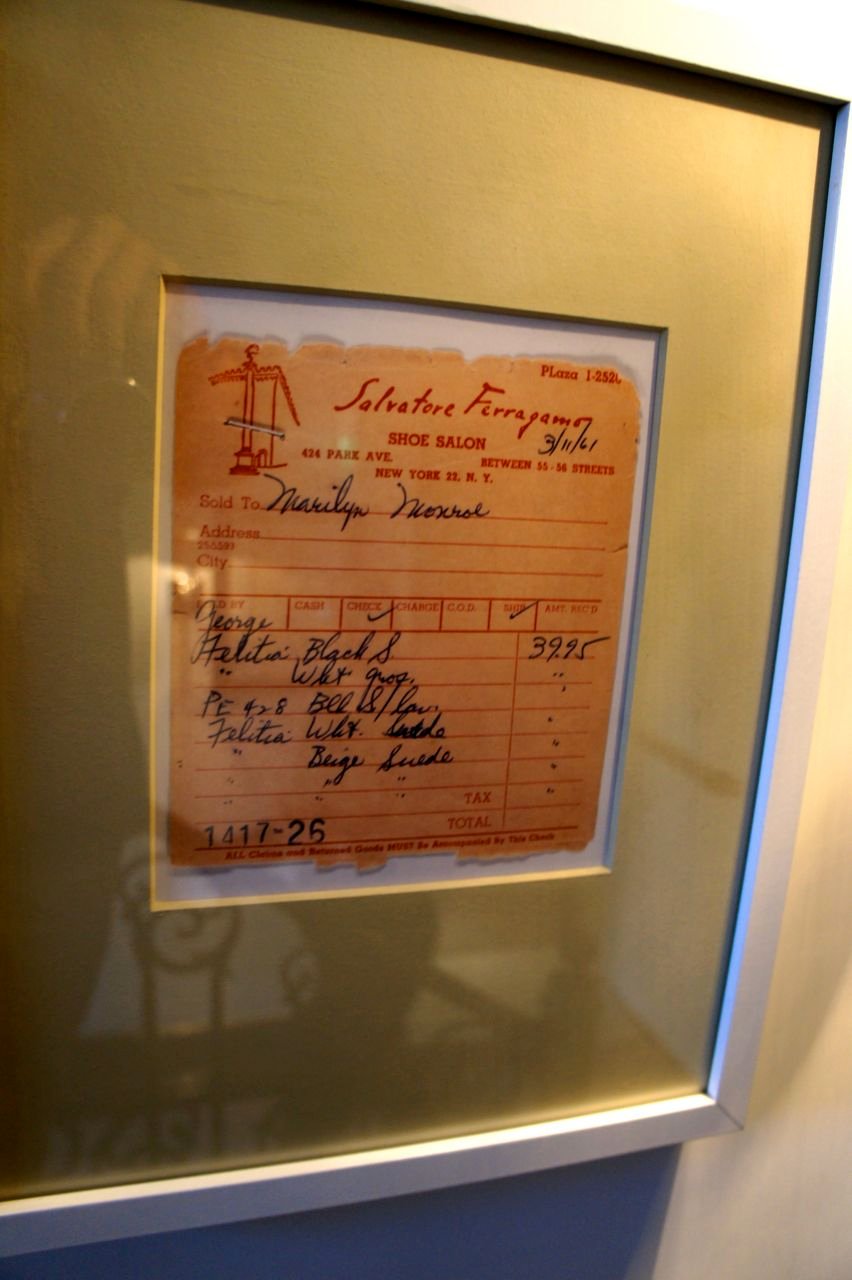 PLaza 1-252
Salvatore Ferragamo
SHOE SALON 3/11/61
424 PARK AVE. BETWEEN 55-56 STREETS
NEW YORK 22, N. Y.
Sold To Marilyn Monroe
Address
255593
City
SOLD BY CASH CHECK CHARGE C.O.D. SHIP AMT. REC'D
George
Felitia Black S 39.95
" Wht gros. "
PE 428 Blk S/
Felitia Wht. Suede "
" Beige Suede "
" " " TAX "
1417-26 TOTAL
ALL Claims and Returned Goods MUST Be Accompanied By This Check